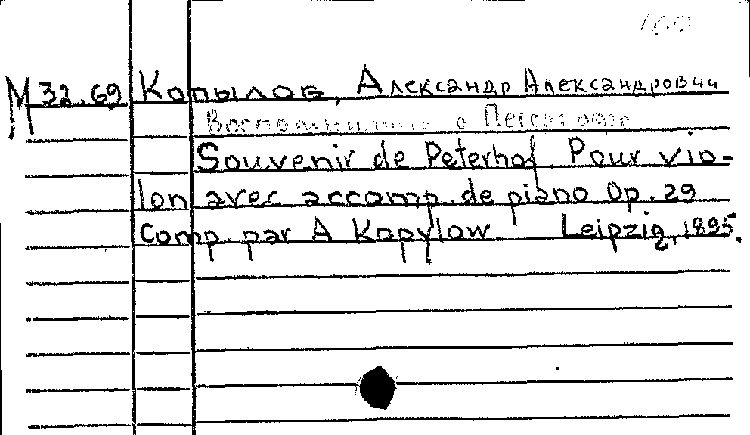 160
М 32.69 Копылов, Александр Александрович
Воспоминание о Петергофе
Souvenir de Peterhof Pour vio-
lon avec accomp. de piano Op. 29
comp. par A Kopylow Leipzig, 1895.